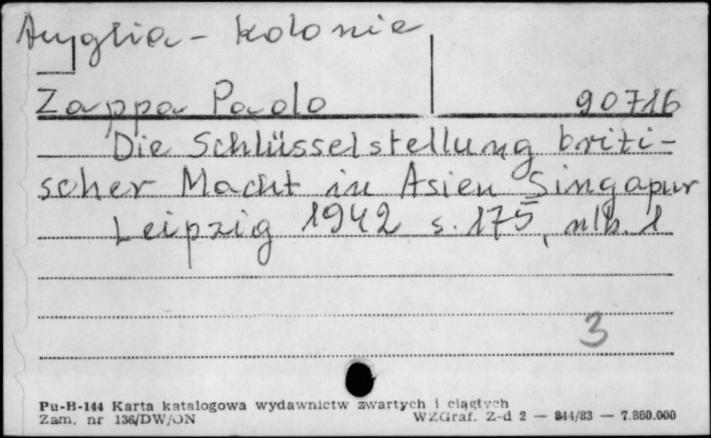 Anglia - kolonie
Zappa Paolo 90716
Die Schlüsselstellung briti-
scher Macht in Asien Singapur
Leipzig 1942 s. 175, nlb. 1
3
Pu-B-144 Karta katalogowa wydawnictw zwartych i ciągłych
Zam. nr 136/DW/ON WZGraf. Z-d 2 — 844/83 — 7.880.000